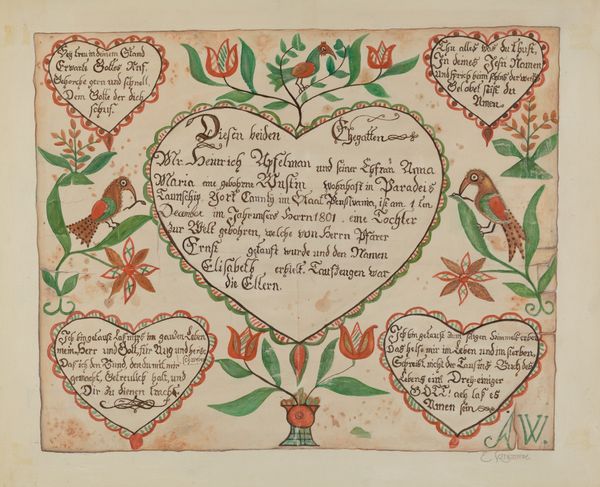 Sey treu in deinem Stand
Erwarte Gottes Ruf.
Gehorche gern und schnell,
Dem Gotte der dich
schuf.
Thu alles was du thust,
In deines Jesu Namen
Und sprich beim
Gelobet seist du
Amen.
Diesen beiden Ehegatten
Mr. Henrich Apfelman und seiner Ehfrau Anna
Maria eine gebohrne Wustin wohnhaft in Paradeis
Taunschip, York Caunty im Staat Pensilvania, ist am 1 ten
December im Jahr unsers Herrn 1801. eine Tochter
zur Welt gebohren, welche von Herrn Pfarer
Ernst getauft wurde und den Namen
Elisabeth erhielt. Taufzeugen war
die Eltern.
Ich bin getauft laß mirs im ganzen Leben
mein Herr und Gott, für Aug und herz
schweben
Daß ich den Bund, den du mit mir
gemacht, Getreulich halt, und
Dir zu dienen tracht.
Ich bin getauft zum
Das helfe mir im Leben und im sterben,
Schreibst nicht der Tauf ins Buch des
Lebens ein! Drey einiger
GOTT! ach laß es
Amen sein
AW.